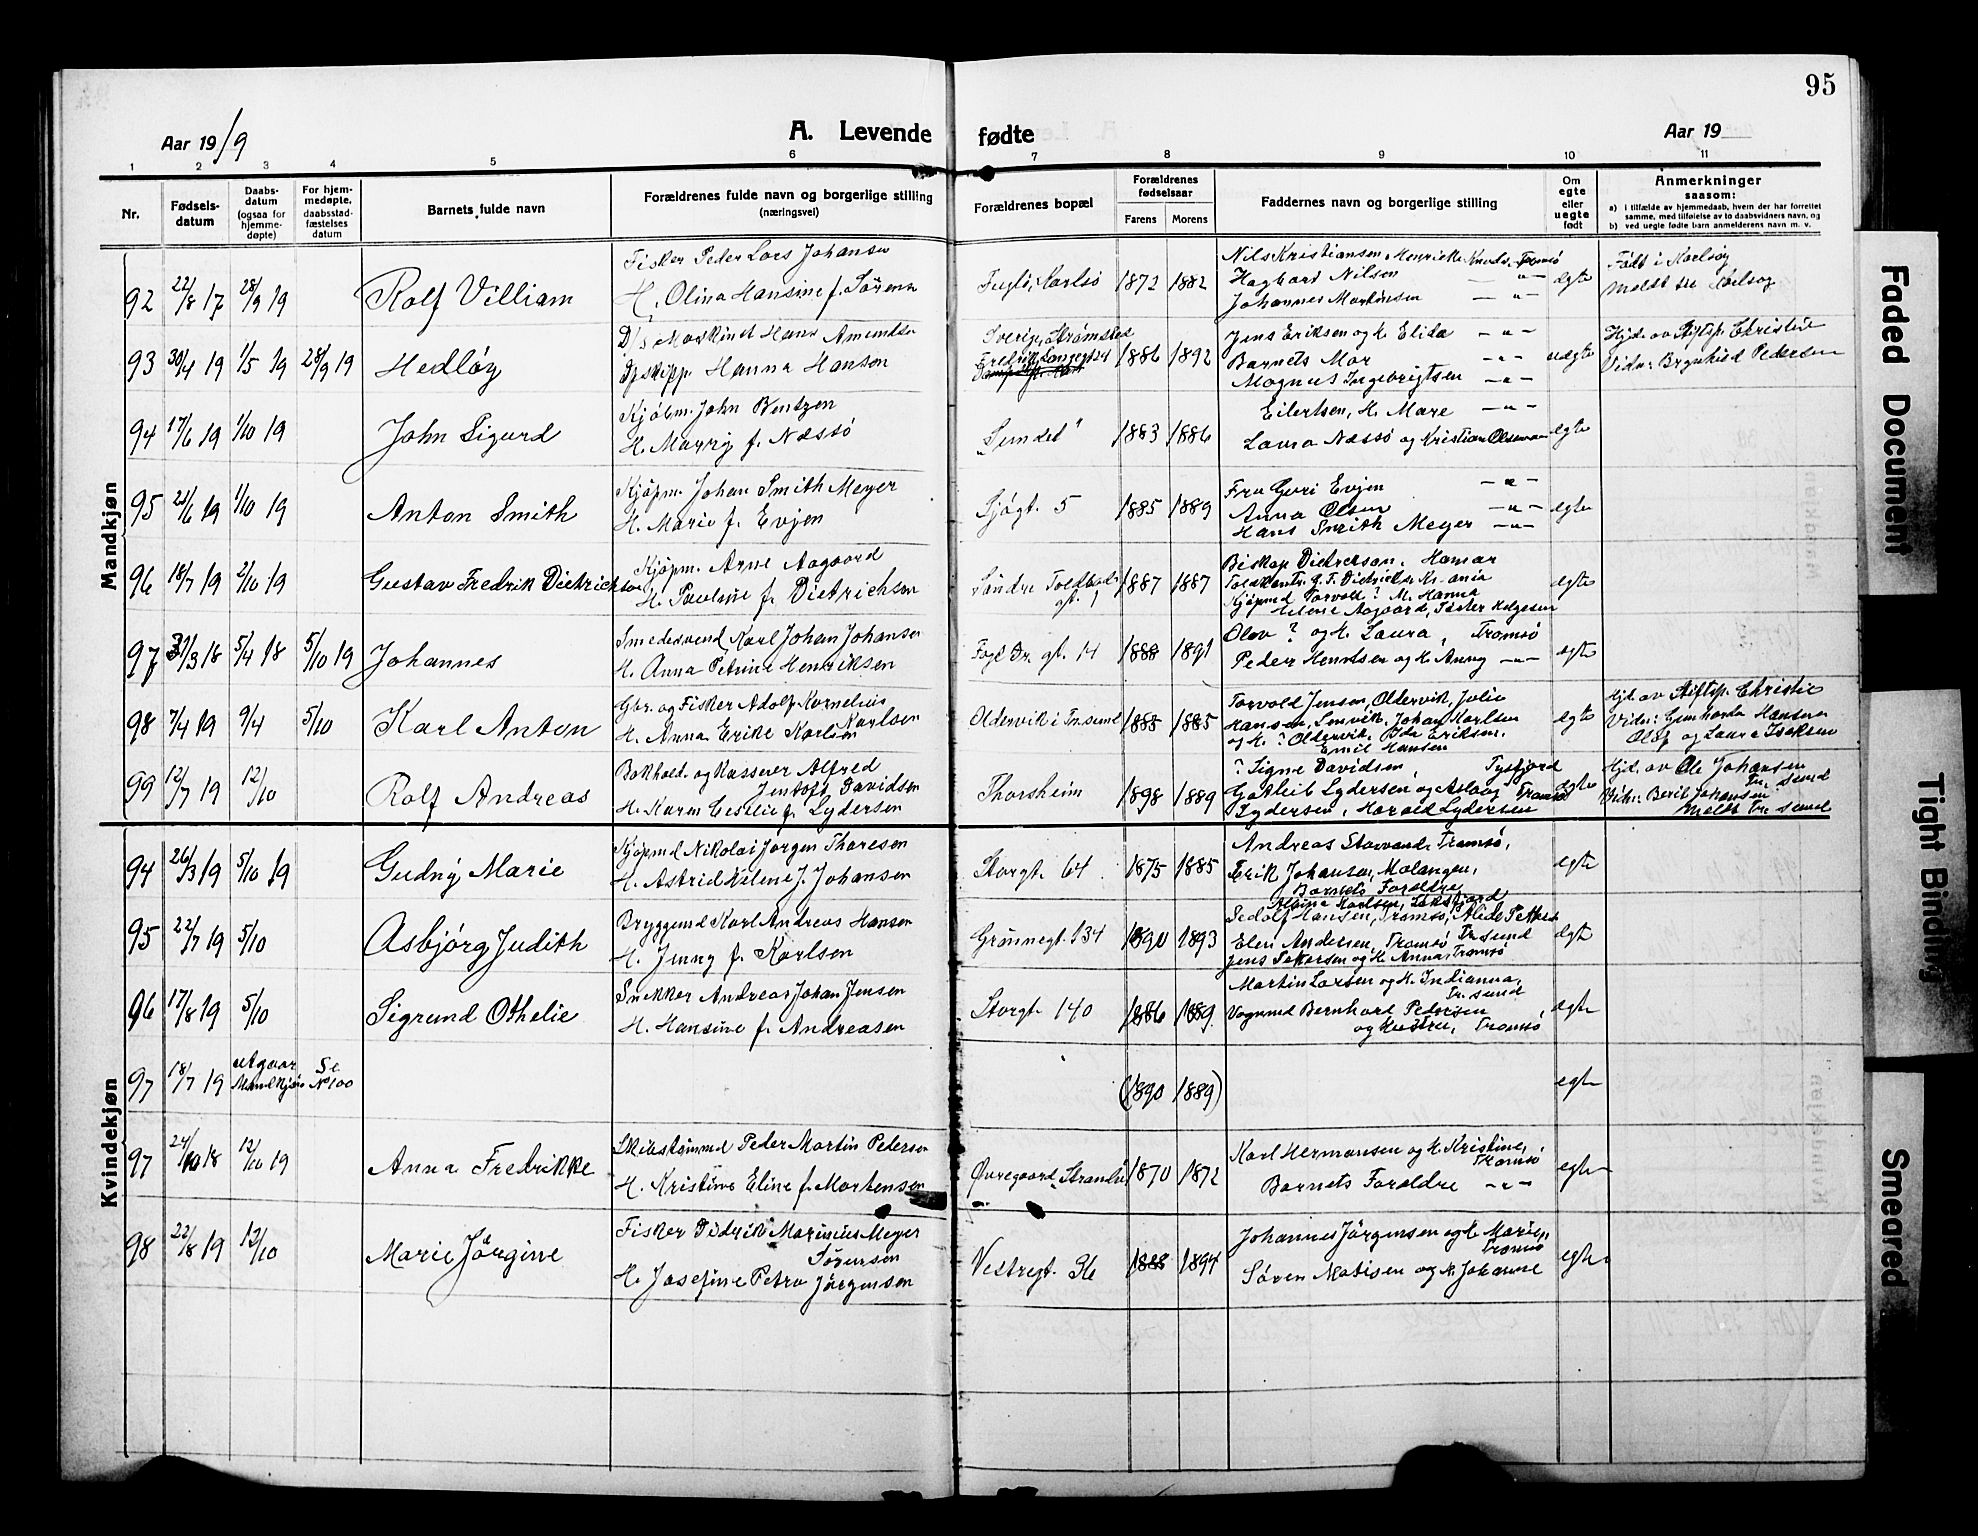 95
Aar 1919
A. Levende fødte
Aar 19
1 2 3 4 5 6 7 8 9 10 11
Nr.
Fødsels-
datum
Daabs-
datum
(ogsaa for
hjemme-
døpte)
For hjem-
medøpte,
daabsstad-
fæstelses
datum
Barnets fulde navn
Forældrenes fulde navn og borgerlige stilling
(næringsvei)
Forældrenes bopæl
Forældrenes
fødselsaar
Farens Morens
Faddernes navn og borgerlige stilling
Om
egte
eller
uegte
født
Anmerkninger
saasom:
a) i tilfælde av hjemmedaab, hvem der har forrettet
samme, med tilføielse av to daabsvidners navn, og
b) ved uegte fødte barn anmelderens navn m. v.
Mandkjøn
92 22/8 17 28/9 19 Rolf Villiam
Fisker Peder Lars Johansen
H. Olina Hansine f. Sørens
Fuglö, Karlsö 1872 1882
Nils Kristiansen, Henrikke Knuds. Tromsö
Hagbart Nilsen — " —
Johannes Martinsen — " —
egte
Født i Karlsøy
Meldt til Karlsøy
93 30/4 19 1/5 19 28/9 19 Hedløg
D/s Maskinist Hans Amundsen
Hanna Hansen
Sverig, Strömstad
1886 1892
Jens Eriksen og H. Elida — " —
Barnets Mor — " —
Magnus Ingebrigtsen — " —
uegte
Hjd. av Stiftsp. Christie
Vidn: Brynhild Pedersen
94 17/6 19 1/10 19 John Sigurd
Kjöbm. John Bentzen
H. Marry f. Næssö
"Sundet" 1883 1886
Eilertsen, H. Mare — " —
Laura Næssö og Kristian Olsen
egte
95 21/6 19 1/10 19 Anton Smith
Kjöpm. Johan Smith Meyer
H. Marie f. Evjen
Sjøgt. 5 1885 1889
Fru Guri Evjen — " —
Anna Olsen — " —
Hans Smith Meyer — " —
egte
96 18/7 19 2/10 19 Gustav Fredrik Dietrichson
Kjöpm. Arne Aagaard
H. Pauline f. Dietrichson
Söndre Toldbod
gt. 1
1887 1887
Biskop Dietrichson, Hamar
G. F. Dietrichs Kr-ania
Kjöpmd Torvald ? M. Hanna
Helene Aagaard, Søster Helgesen
egte
97 31/3 18 5/4 18 5/10 19 Johannes
Smedesvend Karl Johan Johansen
H. Anna Petrine Henriksen
Fogd Dr. gt. 14 1888 1891
Olav ? og H. Laura, Tromsö
Peder Henriksen og H. Anny — " —
egte
98 7/4 19 9/4 5/10 Karl Anton
Gbr. og Fisker Adolf Kornelius
Karlsen
H. Anna Erike Karlsen
Oldervik i Tr. sund 1888 1885
Torvald Jensen, Oldervik, Julie
Hansen, Lenvik, Johan Karlsen
og H. ? Oldervik, Ida Eriksen,
Emil Hansen
egte
Hjd. av Stiftsp. Christie
Vidn: Hansen
Olaf og Laura Isaksen
99 12/7 19 12/10 Rolf Andreas
Bokhold. og Kasserer Alfred
Jentoft Davidsen
H. Karen Cesilie f. Lydersen
Thorsheim 1898 1889
? Signe Davidsen, Tysfjord
Gotleib Lydersen og Aslaug Tromsö
Lydersen, Harald Lydersen
egte
Hjd. av Ole Johansen
Tr. sund
Vidn: Berit Johansen
Meldt Tr. sund
Kvindekjøn
94 26/3 19 5/10 19 Gudny Marie
Kjöpmd Nikolai Jörgen Thoresen
H. Astrid Helene J. Johansen
Storgt. 64 1875 1885
Andreas Tromsö,
Erik Johansen, Malangen,
Barnets Foreldre
egte
95 22/7 19 5/10 Asbjörg Judith
Bryggemd Karl Andreas Hansen
H. Jenny f. Karlsen
Grönnegt. 134 1890 1893
Alvine Karlsen,
Sedolf Hansen, Tromsö, Alide Petters
Tr. sund
Elen Andersen, Tromsö
Jens Pettersen og H. Anna, Tromsö
egte
96 17/8 19 5/10 Sigrund Othelie
Snekker Andreas Johan Jensen
H. Hansine f. Andreasen
Storgt. 140 1886 1889
Martin Larsen og H. Indianna,
Tr. sund
Vognmd Bernhard Pedersen
og Hustru, Tromsö
egte
97 18/7 19 utgaar Se
Mandkjön No 100
(1890 1889)
egte
97 24/10 18 12/10 19 Anna Fredrikke
Peder Martin Pedersen
H. Kristine Eline f. Mortensen
Øvregaard, Strandv. 1870 1872
Karl Hermansen og H. Kristine,
Tromsö
Barnets Foreldre — " —
egte
98 22/8 19 12/10 Marie Jörgine
Fisker Didrik Marinius Meyer
Sörensen
H. Josefine Petra Jörgensen
Vestregt. 36 1888 1894
Johannes Jörgensen og H. Marie,
Tromsö
Sören Matisen og H. Johanne
egte
Faded Document
Tight Binding
Smeared